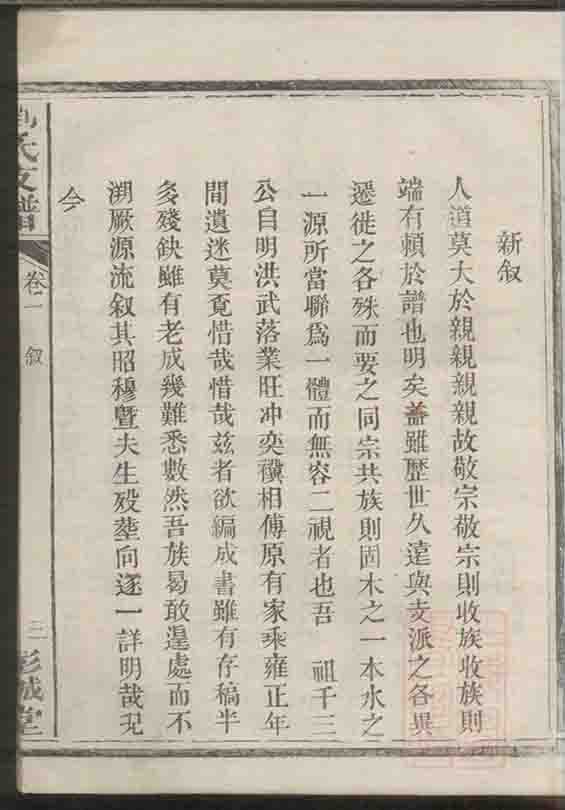 新叙
人道莫大於親親親親故敬宗敬宗則收族收族則
端有頼於譜也明矣葢雖歷世久遠與支派之各異
遷徙之各殊而要之同宗共族則固木之一本水之
一源所當聯爲一體而無容二視者也吾 祖千三
公自明洪武落業旺冲奕禩相傳原有家乘雍正年
間遺迷莫覔惜哉惜哉兹者欲編成書雖有存稿半
多殘缺雖有老成幾難悉數然吾族曷敢遑處而不
溯厥源流叙其昭穆曁夫生殁塟向逐一詳明哉況
今
氏支譜 卷一 叙 三 彭城堂